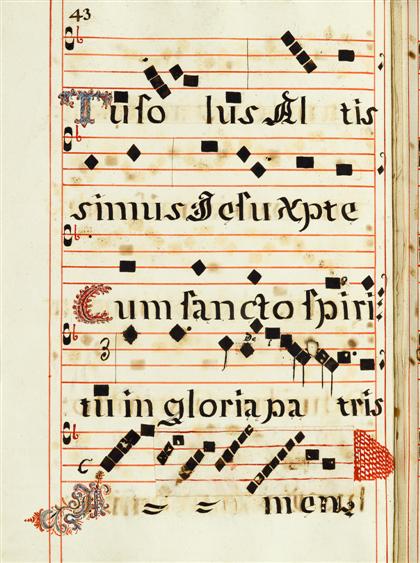 43
Tu so lus Al tis
simus Jesu xpte
Cum sancto spiri
3
tu in gloria pa tris
C
A = = men